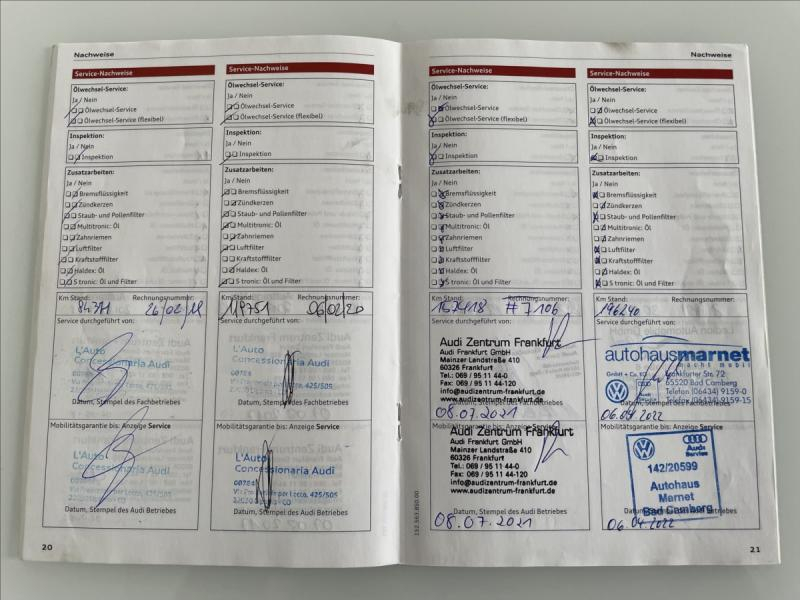 Nachweise
Service-Nachweise
Ölwechsel-Service:
Ja / Nein
Ölwechsel-Service
Ölwechsel-Service (flexibel)
Inspektion:
Ja / Nein
Inspektion
Zusatzarbeiten:
Ja / Nein
Bremsflüssigkeit
Zündkerzen
Staub- und Pollenfilter
Multitronic: Öl
Zahnriemen
Luftfilter
Kraftstofffilter
Haldex: Öl
S tronic: Öl und Filter
Km Stand: Rechnungsnummer:
26/02/18
Service durchgeführt von:
L'Auto
Concessionaria Audi
Datum, Stempel des Fachbetriebes
Mobilitätsgarantie bis: Anzeige Service
L'Auto
Concessionaria Audi
Datum, Stempel des Audi Betriebes
20
Service-Nachweise
Ölwechsel-Service:
Ja / Nein
Ölwechsel-Service
Ölwechsel-Service (flexibel)
Inspektion:
Ja / Nein
Inspektion
Zusatzarbeiten:
Ja / Nein
Bremsflüssigkeit
Zündkerzen
Staub- und Pollenfilter
Multitronic: Öl
Zahnriemen
Luftfilter
Kraftstofffilter
Haldex: Öl
S tronic: Öl und Filter
Km Stand: Rechnungsnummer:
119751 06/02/20
Service durchgeführt von:
L'Auto
Concessionaria Audi
00784
425/505
Datum, Stempel des Fachbetriebes
Mobilitätsgarantie bis: Anzeige Service
L'Auto
Concessionaria Audi
00784
per Lecco, 425/505
Datum, Stempel des Audi Betriebes
152.563.850.00
Nachweise
Service-Nachweise
Ölwechsel-Service:
Ja / Nein
Ölwechsel-Service
Ölwechsel-Service (flexibel)
Inspektion:
Ja / Nein
Inspektion
Zusatzarbeiten:
Ja / Nein
Bremsflüssigkeit
Zündkerzen
Staub- und Pollenfilter
Multitronic: Öl
Zahnriemen
Luftfilter
Kraftstofffilter
Haldex: Öl
S tronic: Öl und Filter
Km Stand: Rechnungsnummer:
# 7106
Service durchgeführt von:
Audi Zentrum Frankfurt
Audi Frankfurt GmbH
Mainzer Landstraße 410
60326 Frankfurt
Tel.: 069 / 95 11 44-0
Fax: 069 / 95 11 44-120
info@audizentrum-frankfurt.de
www.audizentrum-frankfurt.de
Datum, Stempel des Fachbetriebes
08.07.2021
Mobilitätsgarantie bis: Anzeige Service
Audi Zentrum Frankfurt
Audi Frankfurt GmbH
Mainzer Landstraße 410
60326 Frankfurt
Tel.: 069 / 95 11 44-0
Fax: 069 / 95 11 44-120
info@audizentrum-frankfurt.de
www.audizentrum-frankfurt.de
Datum, Stempel des Audi Betriebes
08.07.2021
Service-Nachweise
Ölwechsel-Service:
Ja / Nein
Ölwechsel-Service
Ölwechsel-Service (flexibel)
Inspektion:
Ja / Nein
Inspektion
Zusatzarbeiten:
Ja / Nein
Bremsflüssigkeit
Zündkerzen
Staub- und Pollenfilter
Multitronic: Öl
Zahnriemen
Luftfilter
Kraftstofffilter
Haldex: Öl
S tronic: Öl und Filter
Km Stand: Rechnungsnummer:
196240
Service durchgeführt von:
autohausmarnet
macht mobil
GmbH + Co. KG Frankfurter Str. 72
65520 Bad Camberg
Telefon (06434) 9159-0
Telefax (06434) 9159-15
Datum, Stempel des Fachbetriebes
06.04.2022
Mobilitätsgarantie bis: Anzeige Service
Audi
Service
142/20599
Autohaus
Marnet
Bad Camberg
Datum, Stempel des Audi Betriebes
06.04.2022
21